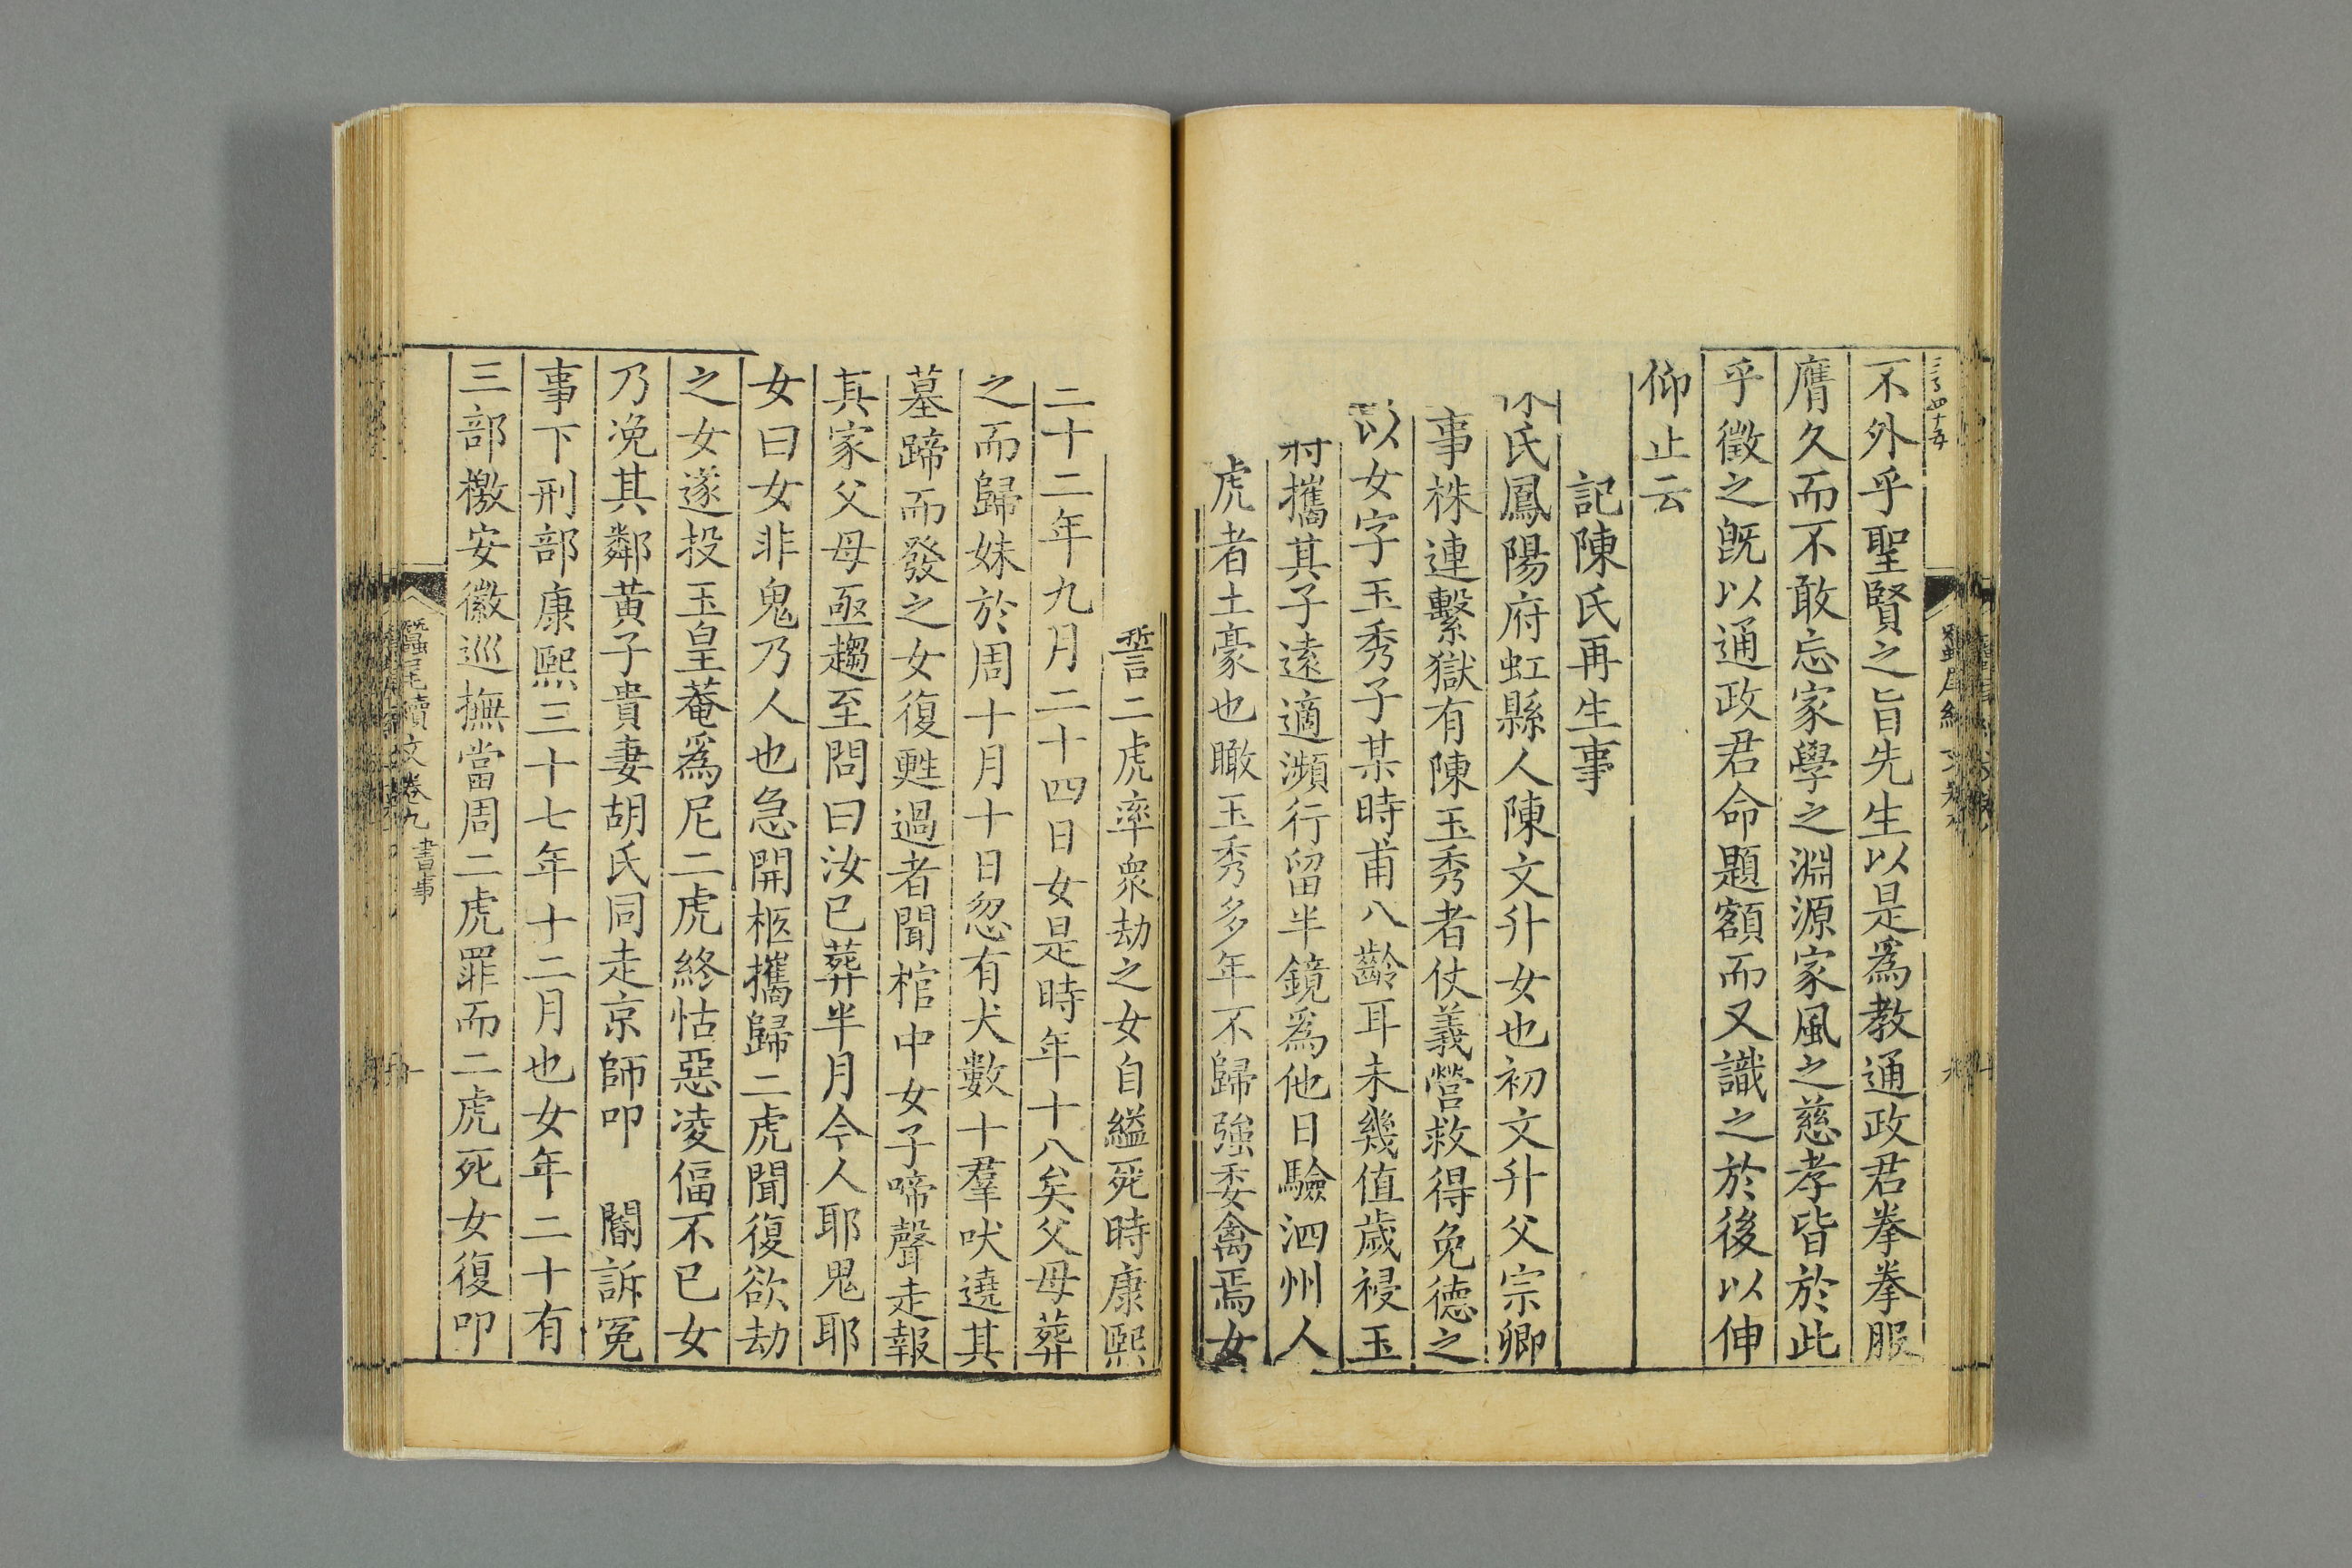 不外乎聖賢之旨先生以是爲教通政君拳拳服
膺久而不敢忘家學之淵源家風之慈孝皆於此
乎徵之旣以通政君命題額而又識之於後以伸
仰止云
記陳氏再生事
氏鳳陽府虹縣人陳文升女也初文升父宗卿
事株連繫獄有陳玉秀者仗義營救得免德之
以女字玉秀子某時甫八齡耳未幾值歲祲玉
村攜其子遠適瀕行留半鏡爲他日驗泗州人
虎者土豪也瞰玉秀多年不歸強委禽焉女
誓二虎率衆劫之女自縊死時康熙
二十二年九月二十四日女是時年十八矣父母葬
之而歸妹於周十月十日忽有犬數十羣吠遶其
墓蹄而發之女復甦過者聞棺中女子啼聲走報
其家父母亟趨至問曰汝已葬半月今人耶鬼耶
女曰女非鬼乃人也急開柩攜歸二虎聞復欲劫
之女遂投玉皇菴爲尼二虎終怙惡凌偪不已女
乃浼其鄰黃子貴妻胡氏同走京師叩 閽訴冤
事下刑部康熙三十七年十二月也女年二十有
三部檄安徽巡撫當周二虎罪而二虎死女復叩
蠶尾續文卷九 書事